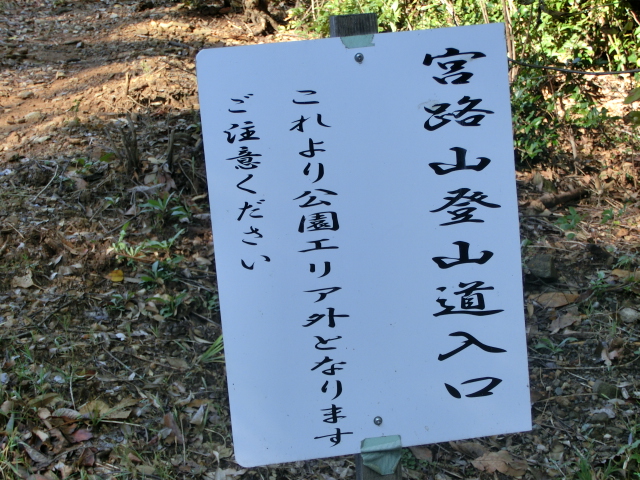 宮路山登山道入口
これより公園エリア外となります
ご注意ください